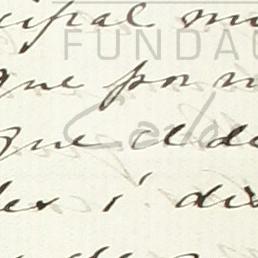 cipal m
FUNDA
que por n
que el de
les i dis